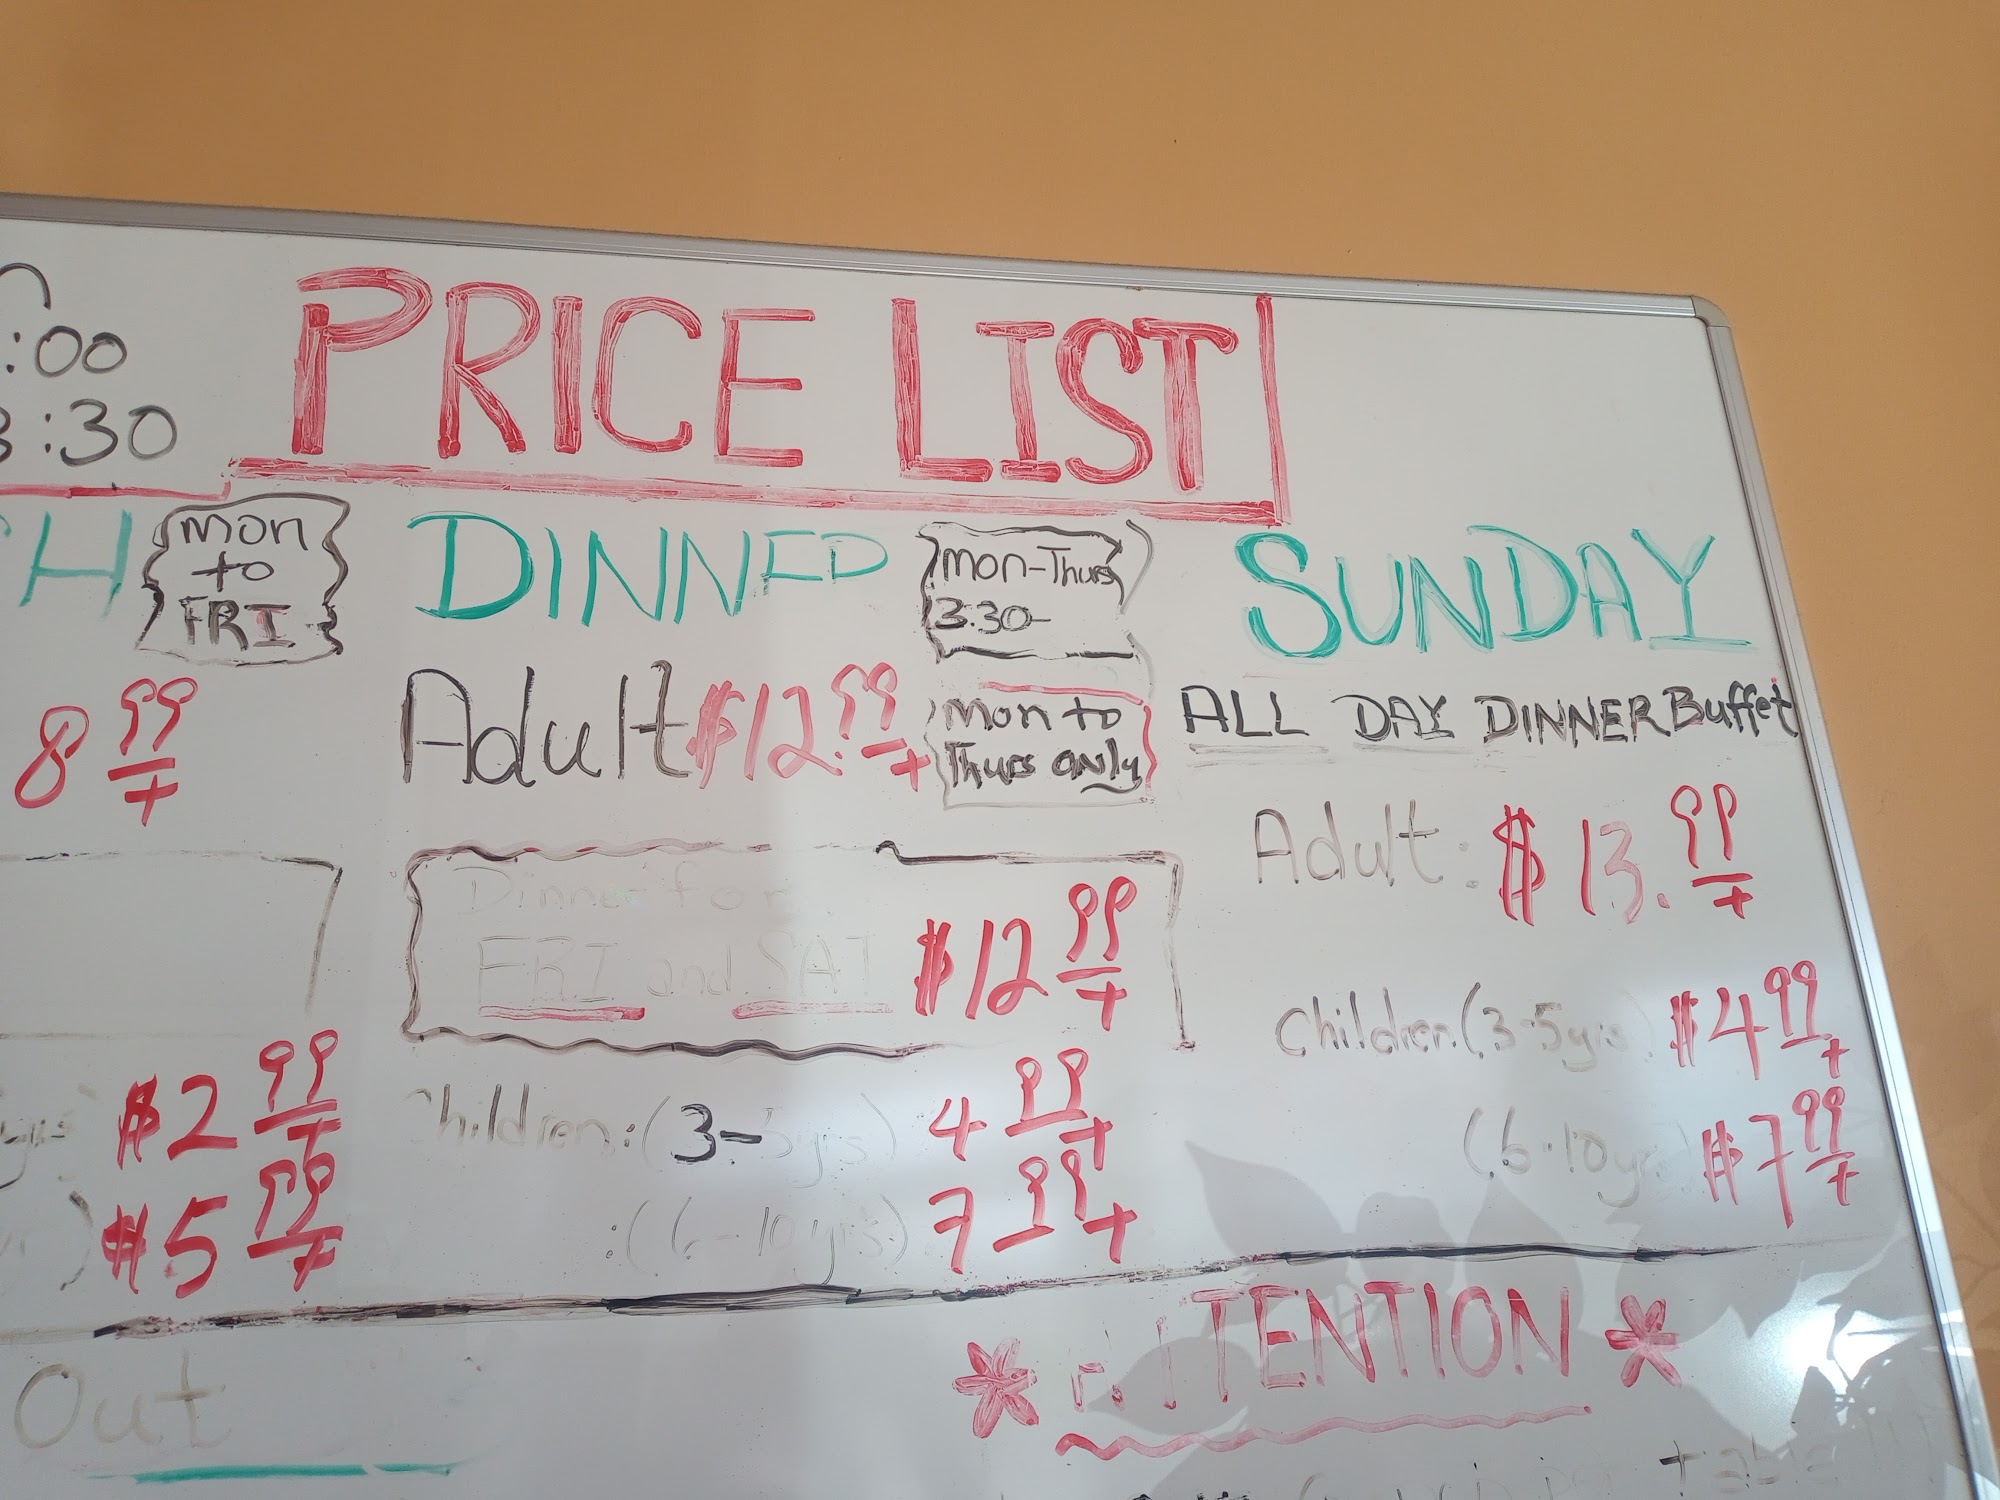 :00
3:30
PRICE LIST
Mon
to
FRI
DINNER
Mon-Thurs
3:30-
SUNDAY
8 99+
Adult $12.99+
Mon to
Thurs only
ALL DAY DINNER Buffet
Adult: $13.99+
Dinner for
FRI and SAT $12 99+
Children (3-5yrs) $4 99+
(6-10yrs) $7 99+
$2 99+
$5 99+
Children: (3-5yrs) 4 99+
:(6-10yrs) 7 99+
Out
* ATTENTION *
table